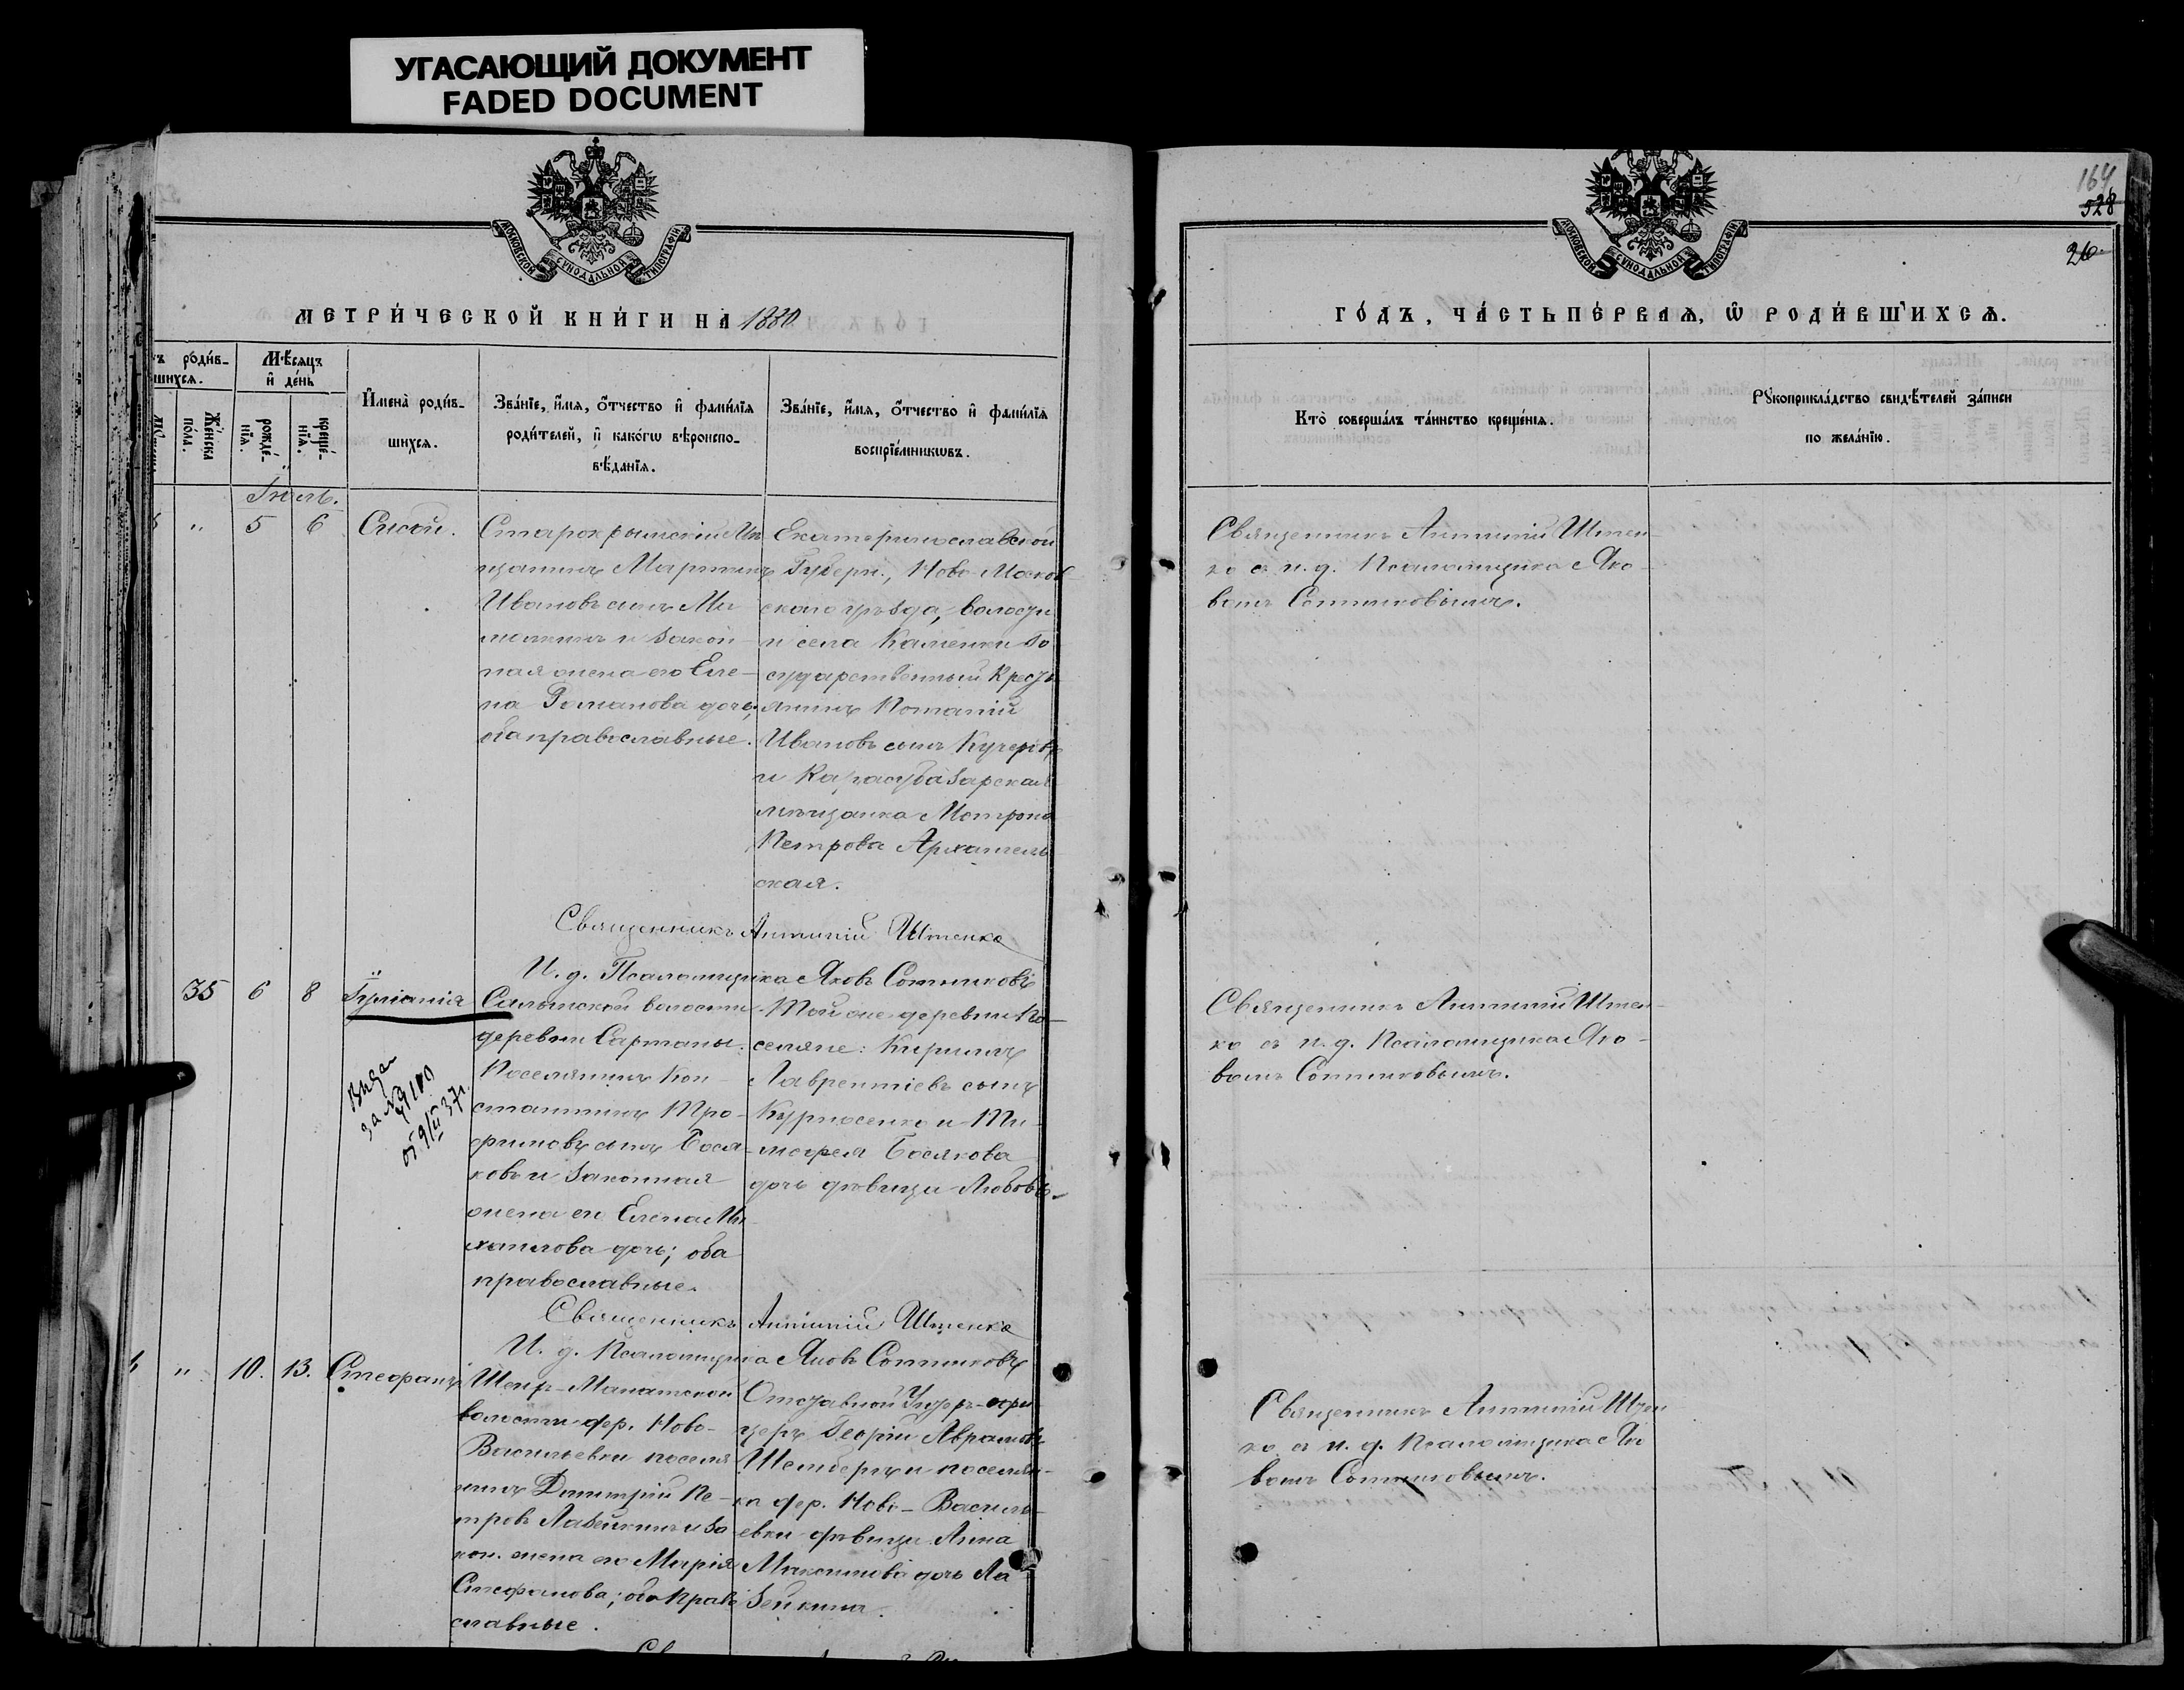 УГАСАЮЩИЙ ДОКУМЕНТ
FADED DOCUMENT
МОСКОВСКОЙ СѴНОДАЛЬНОЙ ТИПОГРАФІИ
МЕТРИ́ЧЕСКОЙ КНИ́ГИ НА 1880
роди́в-
шихся.
Мѣ́сяцъ
и҆ де́нь
Же́нска
по́ла.
рожде́-
нїѧ.
креще́-
нїѧ.
И҆мена̀ роди́в-
шихсѧ.
Зва́нїе, и҆́мѧ, ѻ҆́тчество и҆ фами́лїѧ
роди́телей, и҆ како́гѡ вѣроиспо-
вѣ́данїѧ.
Зва́нїе, и҆́мѧ, ѻ҆́тчество и҆ фами́лїѧ
воспрїе́мникѡвъ.
Іюль.
" 5 6 Сисой.
Старокрымскій Мѣ
щанинъ Мартинъ
Ивановъ сынъ Ми
и закон-
ная жена его Еле-
на Романова дочь,
оба православные.
Екатеринославской
Губерн., Ново-Москов
скаго уѣзда, волости
и села Каменки Го
сударственный Кресть
янинъ Потапій
Ивановъ сынъ Кучеровъ
и Карасубазарская
мѣщанка Матрона
Петрова Архангель
ская.
Священникъ Антипій Штенко
И. д. Псаломщика Яковъ Сотниковъ
35 6 8 Іуліанія
Салынской волости
деревни Сартаны:
Поселянинъ Кон-
стантинъ Тро-
фимовъ сынъ Бося-
ковъ и законная
жена его Елена Ми-
хаилова дочь; оба
православные.
Той же деревни По-
селяне: Кириллъ
Лаврентіевъ сынъ
Курносенко и Ти-
мофея Босякова
дочь дѣвица Любовь.
Выдан
за №
от 9/II 37г.
Священникъ Антипій Штенко
И. д. Псаломщика Яковъ Сотниковъ
" 10. 13. Стефанъ
Шейх-Манатской
волости дер. Ново-
Васильевки поселя
нинъ Димитрій Пе-
тровъ Лазейкинъ и за
кон. жена его Марія
Стефанова; оба право
славные.
Отставной Унтеръ-офи
церъ Георгій Аврамовъ
и поселян-
ка дер. Ново-Василь-
евки дѣвица Анна
Максимова дочь Ла
зейкина.
164
528
26
МОСКОВСКОЙ СѴНОДАЛЬНОЙ ТИПОГРАФІИ
ГО́ДЪ, ЧА́СТЬ ПЕ́РВАѦ, Ѽ РОДИ́ВШИХСѦ.
Кто̀ соверша́лъ та́инство креще́нїѧ.
Рꙋкоприкла́дство свидѣ́телей за́писи
по жела́нїю.
Священникъ Антипій Штен-
ко съ и. д. Псаломщика Яко-
вомъ Сотниковымъ.
Священникъ Антипій Штен-
ко съ и. д. Псаломщика Яко-
вомъ Сотниковымъ.
Священникъ Антипій Штен
ко съ и. д. Псаломщика Яко
вомъ Сотниковымъ.